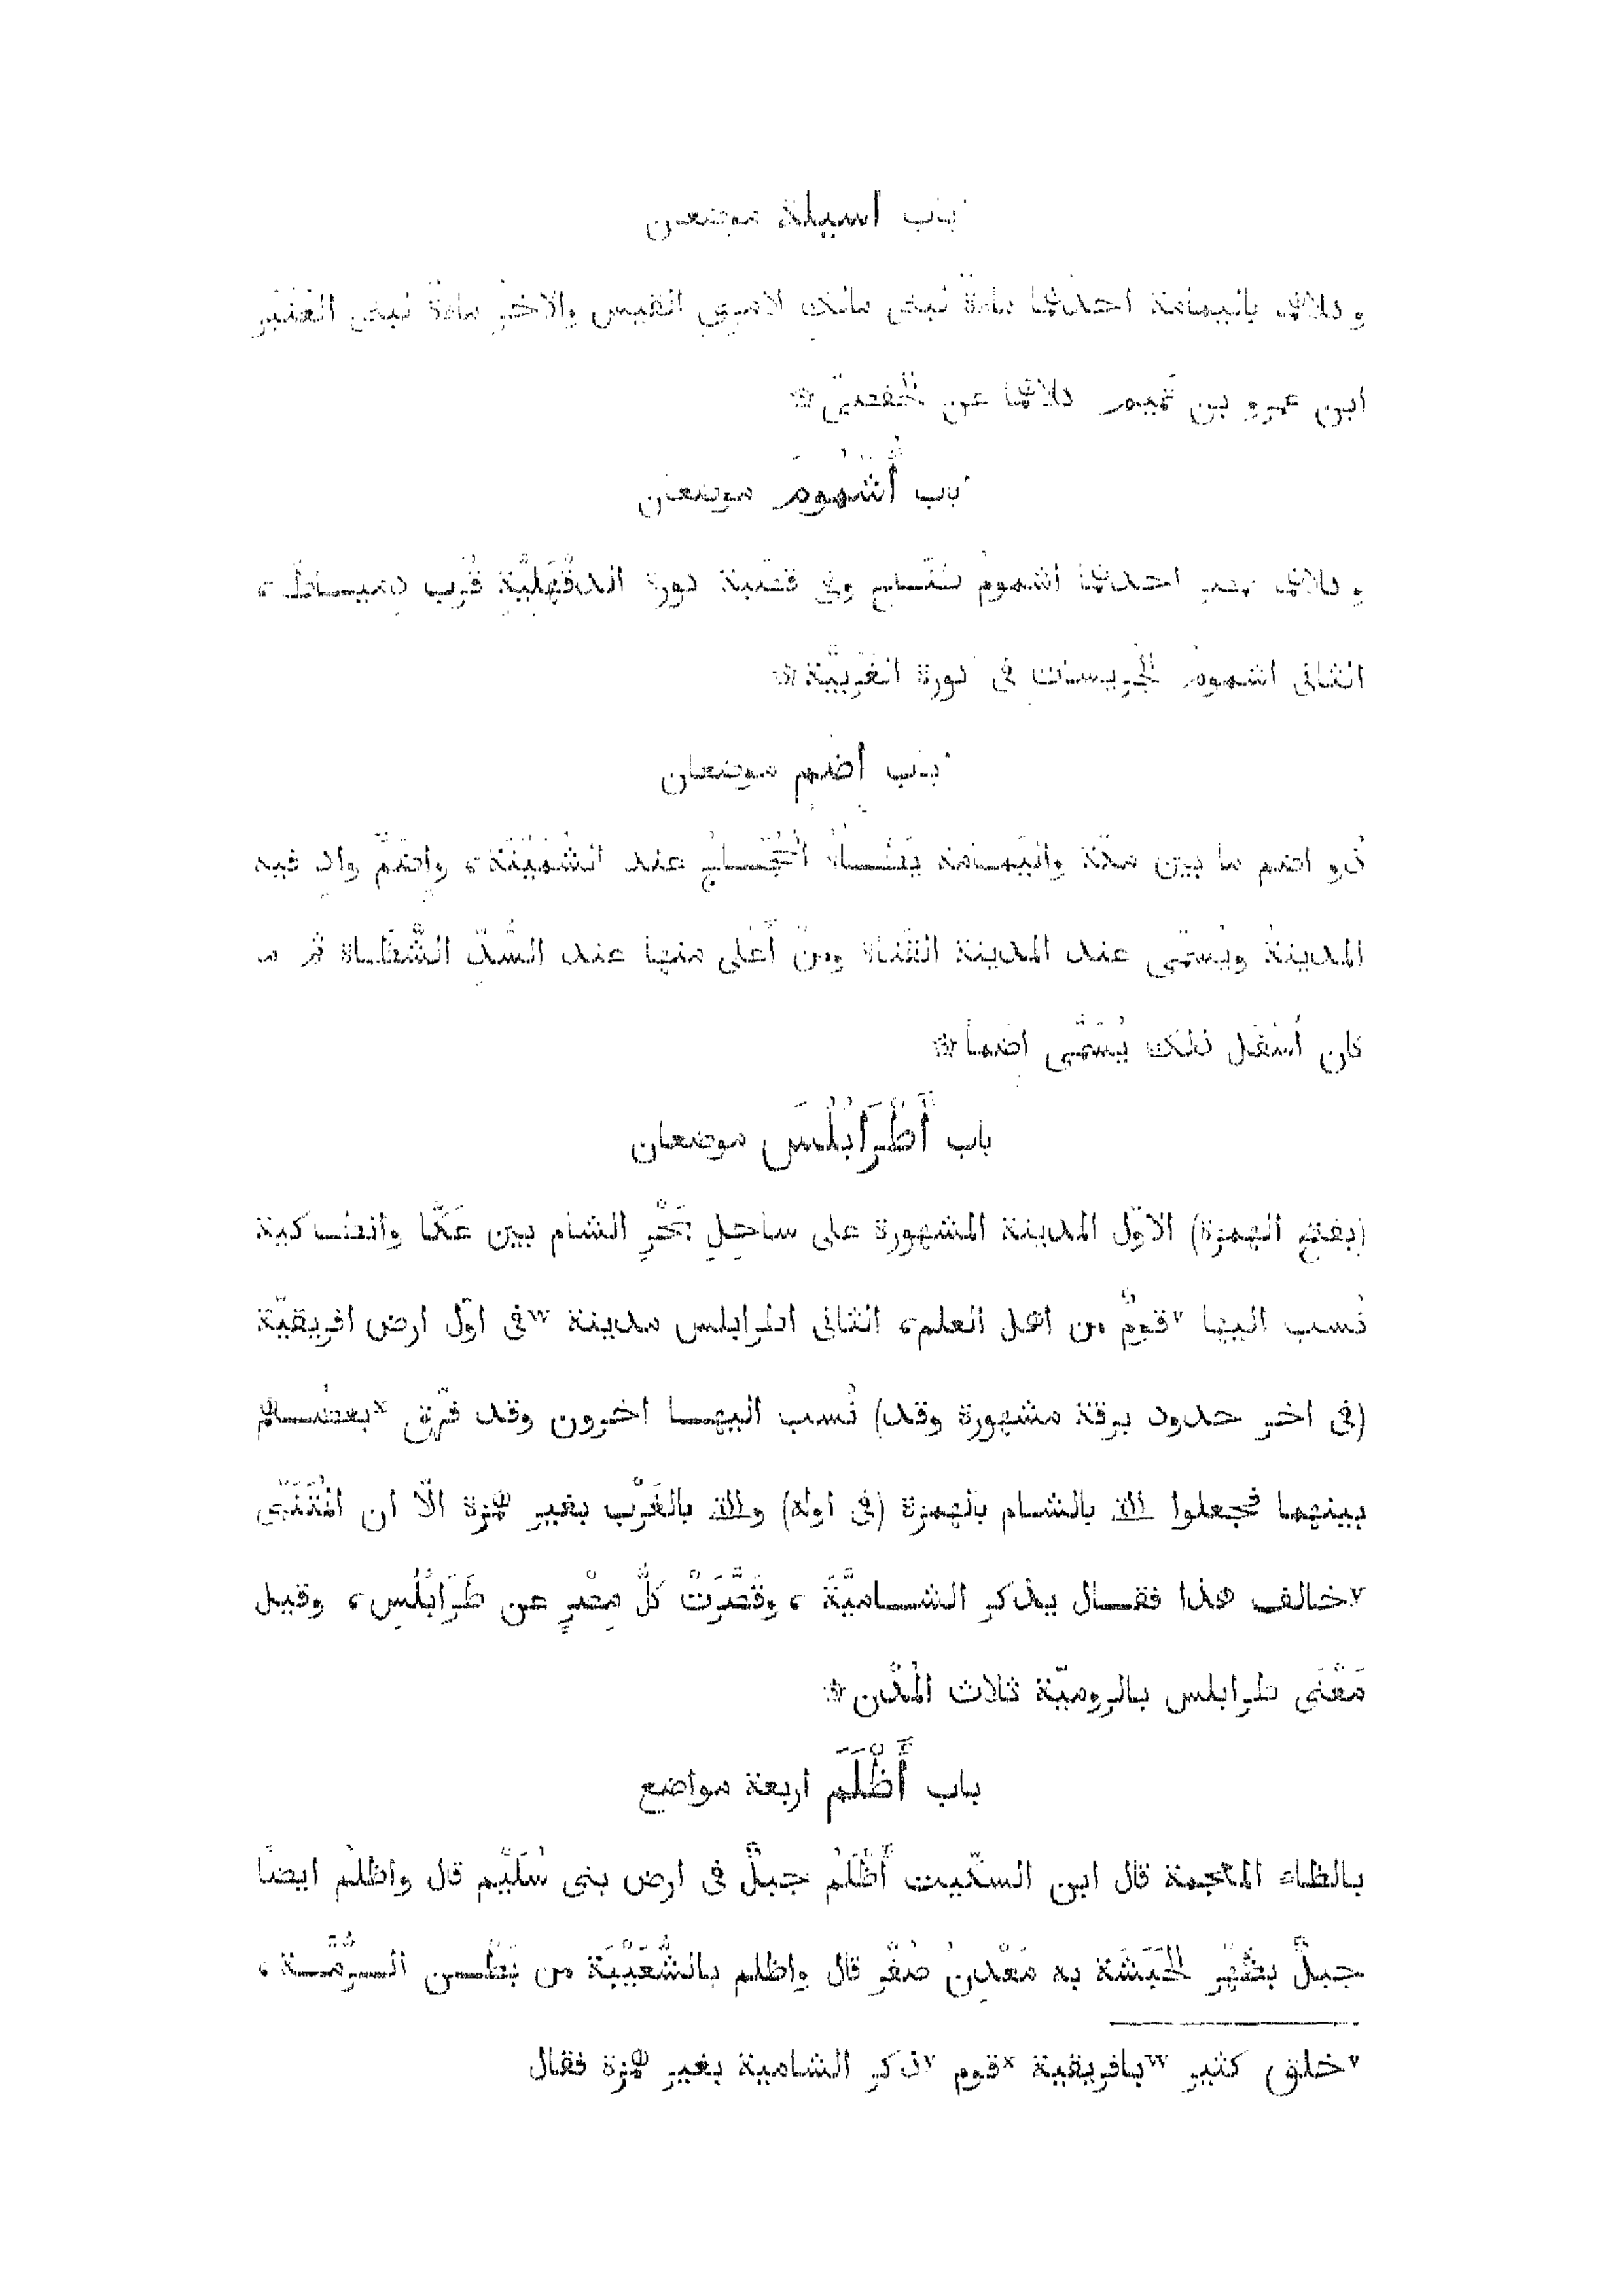 باب أسيلة موضعان
و كلاهما باليمامة احدهما ماءة لبنى مالك لامرئ القيس والآخر ماءة لبنى العنبر
ابن عمرو بن تميم كلاهما عن الحفصى ۞
باب أُشْمُوم موضعان
و كلاهما بمصر احدهما أشموم طناح وهى قصبة كورة الدقهلية قرب دمياط ،
الثانى اشموم الجريسات فى كورة الغربية ۞
باب أضم موضعان
ذو اضم ما بين مكة واليمامة يطأه الحجاج عند السمينة ، واضم واد فيه
المدينة ويسمى عند المدينة القناة ومن أعلى منها عند السد الشظاة ثر ما
كان أسفل ذلك يسمى اضما ۞
باب أَطْرَابُلُسَ موضعان
(بفتح الهمزة) الاوّل المدينة المشهورة على ساحل بَحْرِ الشام بين عَكّا وانطاكية
نُسب اليها ᵛقومٌ من اهل العلم ، الثانى اطرابلس مدينة ʷفى اوّل ارض افريقيّة
(فى اخر حدود برقة مشهورة وقد) نُسب اليهـا اخرون وقد فرّق ˣبعضـهم
بينهما فجعلوا الّتى بالشام بالهمزة (فى اوله) والّتى بالغَرْب بغير همزة الّا ان المُتَنَبّى
ʸخالف هذا فقـال يذكر الشـاميّةَ ، وقَصَّرَتْ كلُّ مِصْرٍ عن طَرَابُلُسِ ، وقيل
مَعْنَى طرابلس بالروميّة ثلاث المُدُن ۞
باب أَظْلَمَ اربعة مواضع
بالظاء المعجمة قال ابن السكّيت أَظْلَمُ جبلٌ فى ارض بنى سُلَيْم قال واظلم ايضًا
جبلٌ بظهر الحَبَشَة به مَعْدِنُ صُفْر قال واظلم بالشُّعَيْبِيَّة من بَطْـن الـرُّمَّـة ،
ᵛخلق كثير ʷبافريقية ˣقوم ʸذكر الشامية بغير همزة فقال